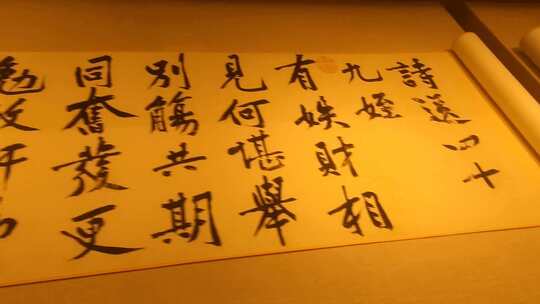 詩送四十
九姪
有娛財相
見何堪舉
別觴共期
同奮發更
勉